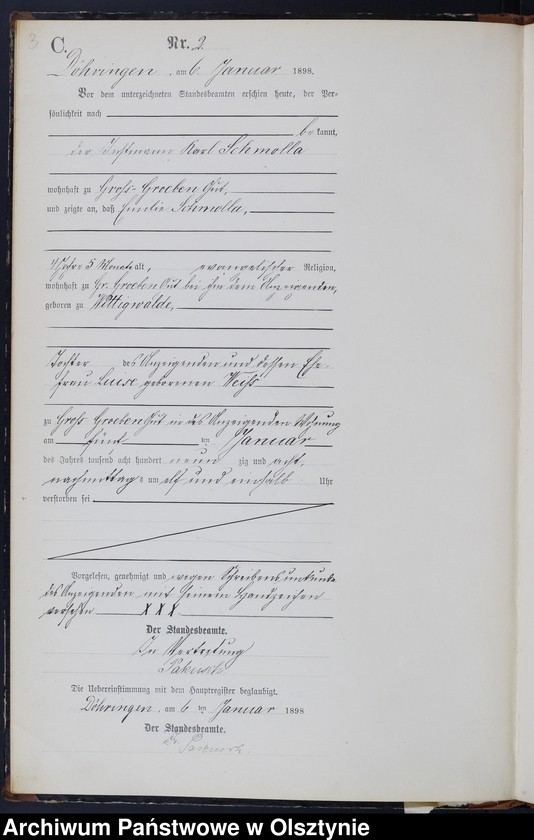 3
C.
Nr. 2.
Döhringen, am 6 Januar 1898.
Vor dem unterzeichneten Standesbeamten erschien heute, der Per-
sönlichkeit nach
be kannt,
der Instmann Karl Schmolla
wohnhaft zu Groß-Groeben Gut,
und zeigte an, daß Emilie Schmolla,
4 Jahre 5 Monate alt, evangelischer Religion,
wohnhaft zu Gr. Groeben Gut bei ihm dem Anzeigenden,
geboren zu Wittigwalde,
Tochter des Anzeigenden und dessen Ehe-
frau Luise geborenen Weiß
zu Groß Groeben Gut in des Anzeigenden Wohnung
am fünf ten Januar
des Jahres tausend acht hundert neun zig und acht,
nachmittags um elf und einhalb Uhr
verstorben sei
Vorgelesen, genehmigt und wegen Schreibensunkunde
des Anzeigenden mit seinem Handzeichen
versehen X X X
Der Standesbeamte.
In Vertretung
Die Uebereinstimmung mit dem Hauptregister beglaubigt.
Döhringen, am 6 ten Januar 1898
Der Standesbeamte.
Archiwum Państwowe w Olsztynie